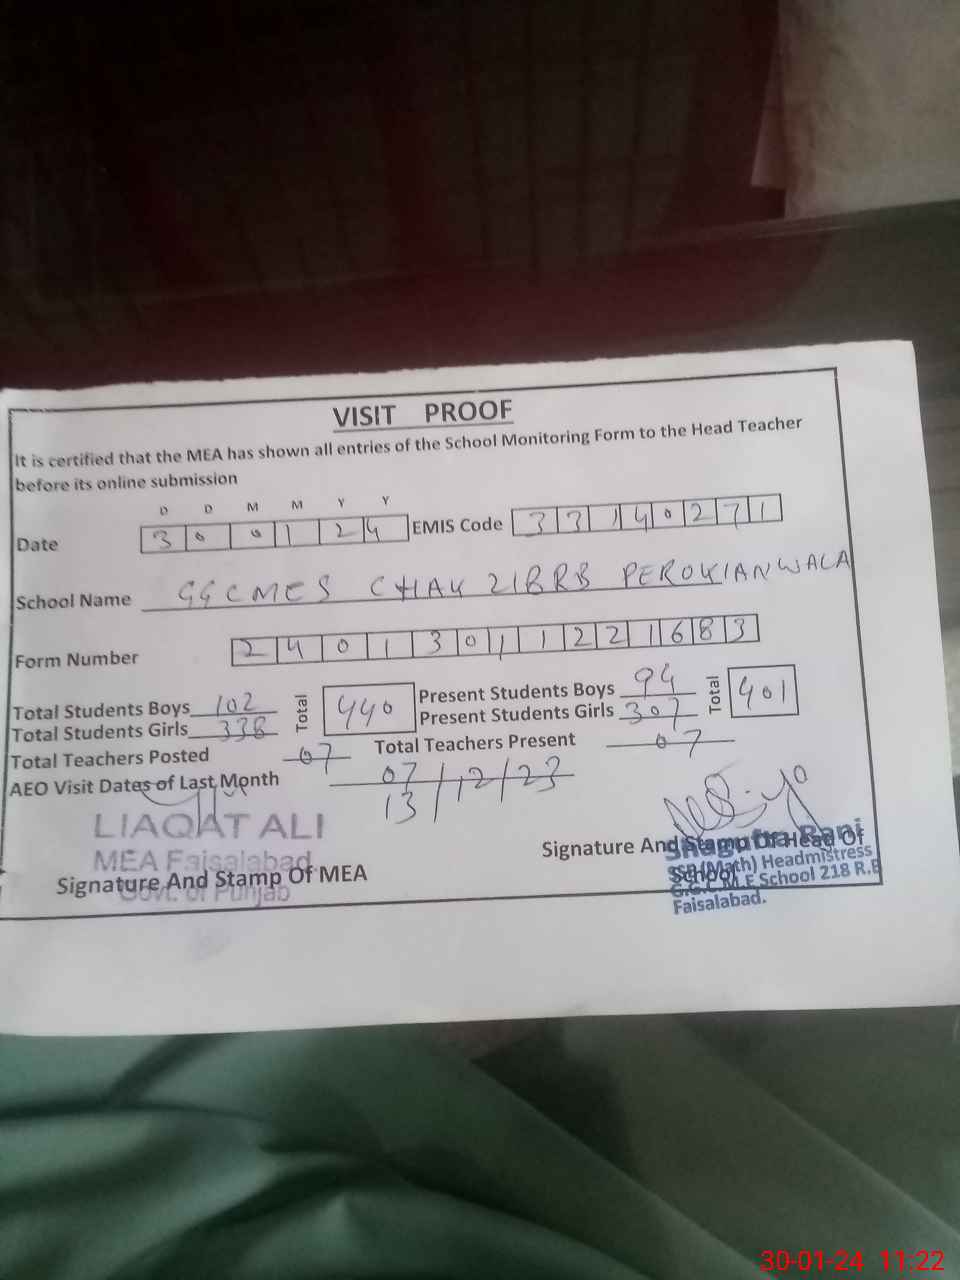 VISIT PROOF
It is certified that the MEA has shown all entries of the School Monitoring Form to the Head Teacher
before its online submission
D D M M Y Y
Date 3 0 0 1 2 4 EMIS Code 3 3 1 4 0 2 7 1
School Name GGCMES CHAK 218RB PEROKIANWALA
Form Number 2 4 0 1 3 0 1 1 2 2 1 6 8 3
Total Students Boys 102 Total 440 Present Students Boys 94 Total 401
Total Students Girls 338 Present Students Girls 307
Total Teachers Posted 07 Total Teachers Present 07
AEO Visit Dates of Last Month 07/12/23
13
LIAQAT ALI
MEA Faisalabad
Govt. of Punjab
Signature And Stamp Of MEA
Signature And Stamp Of Head Of
School
Shagufta Rani
SSE (Math) Headmistress
G.G.C.M.E School 218 R.B
Faisalabad.
30-01-24 11:22